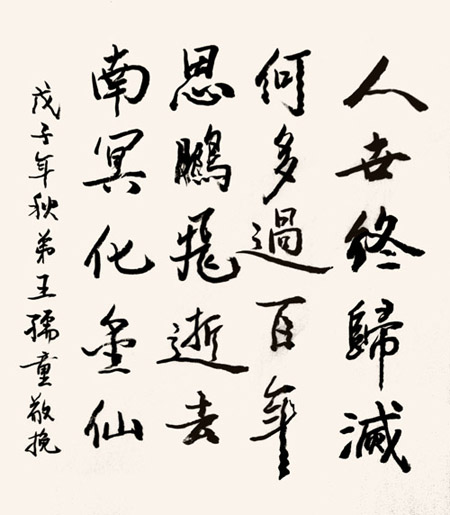 人世終歸滅
何多過百年
思鵬飛逝去
南冥化金仙
戊子年秋弟王孺童敬挽